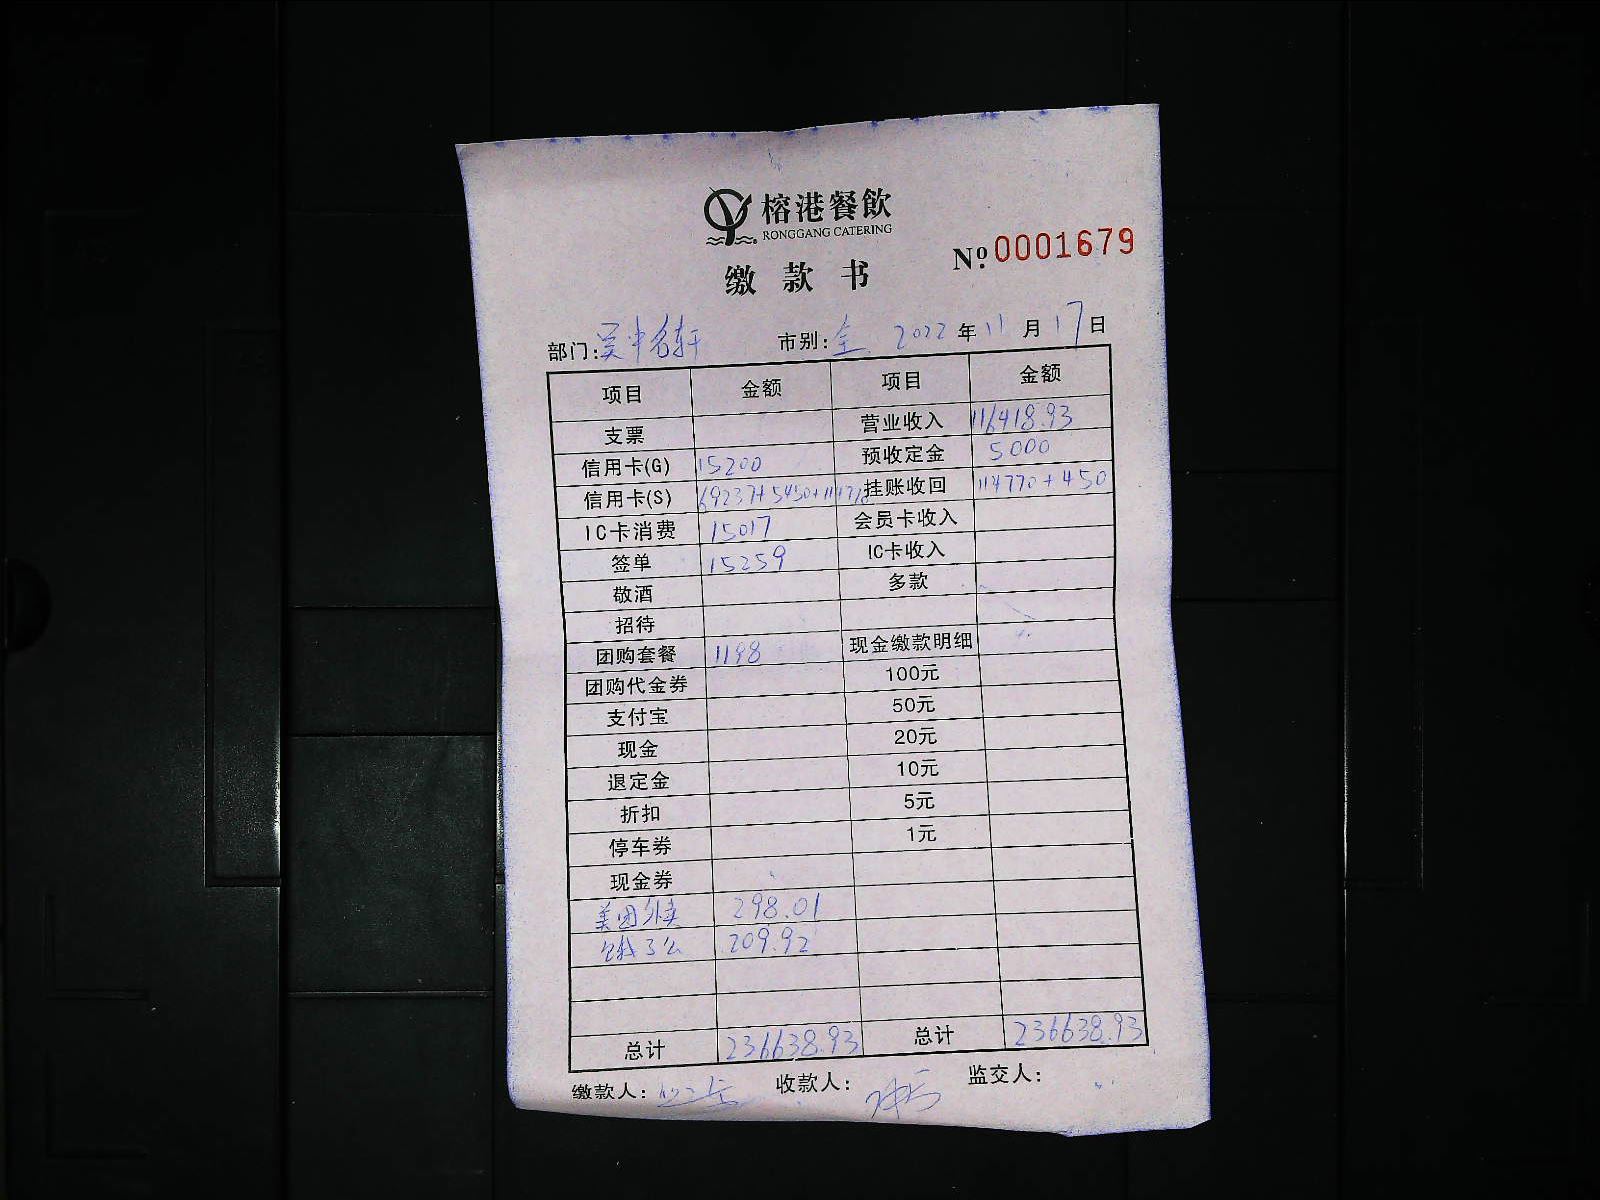 榕港餐飲
RONGGANG CATERING
№ 0001679
缴款书
部门: 吴中名轩 市别: 全 2022 年 11 月 17 日
项目 金额 项目 金额
支票 营业收入 116418.93
信用卡(G) 15200 预收定金 5000
信用卡(S) 69237+5450+114770 挂账收回 114770+450
IC卡消费 15017 会员卡收入
签单 15259 IC卡收入
敬酒 多款
招待
团购套餐 1198 现金缴款明细
团购代金券 100元
支付宝 50元
现金 20元
退定金 10元
折扣 5元
停车券 1元
现金券
美团外卖 298.01
饿了么 209.92
总计 236638.93 总计 236638.93
缴款人: 收款人: 监交人: